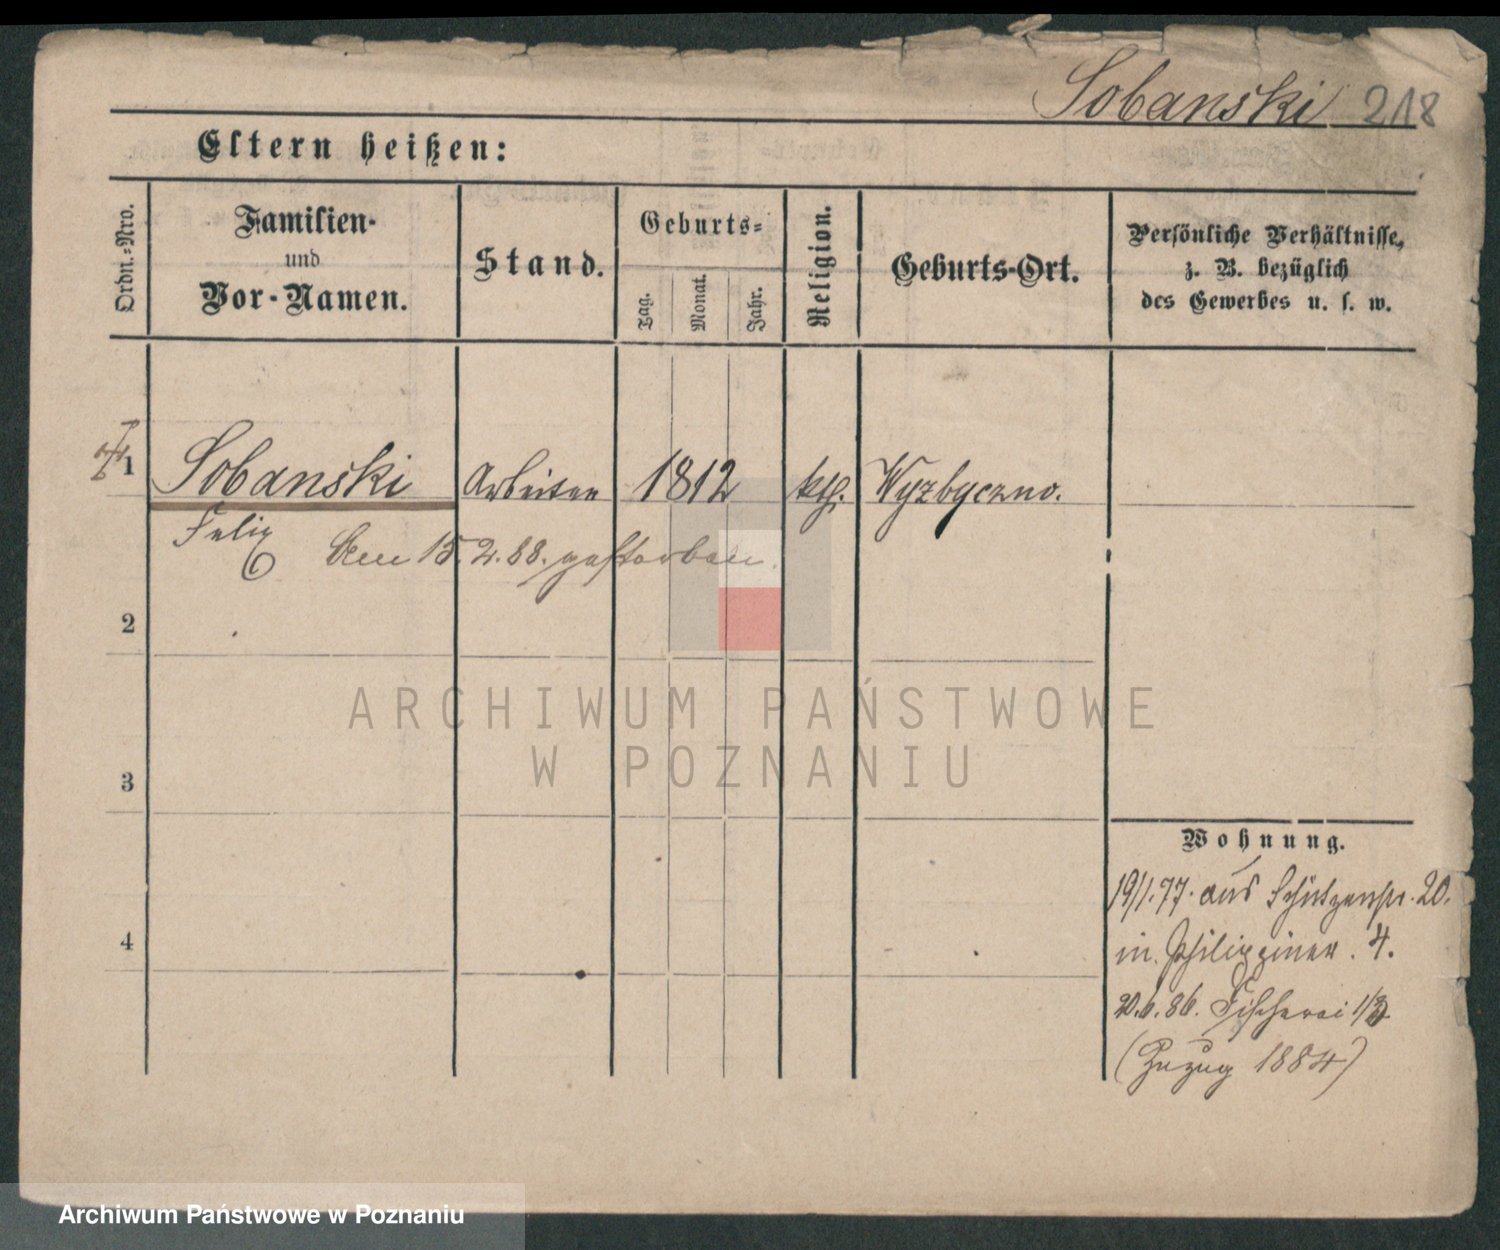 Sobanski 218
Eltern heißen:
Ordn.-Nro.
Familien-
und
Vor-Namen.
Stand.
Geburts-
Tag.
Monat.
Jahr.
Religion.
Geburts-Ort.
Persönliche Verhältnisse,
z. B. bezüglich
des Gewerbes u. s. w.
1 Sobanski Arbeiter 1812 kth. Wyzbyczno.
Felix
Am 15.2.88. gestorben.
2
3
4
ARCHIWUM PAŃSTWOWE
W POZNANIU
Wohnung.
19/1.77. aus Schützenstr. 20.
in Philippiner. 4.
20.6.86. Fischerei
(Zuzug 1884)
Archiwum Państwowe w Poznaniu